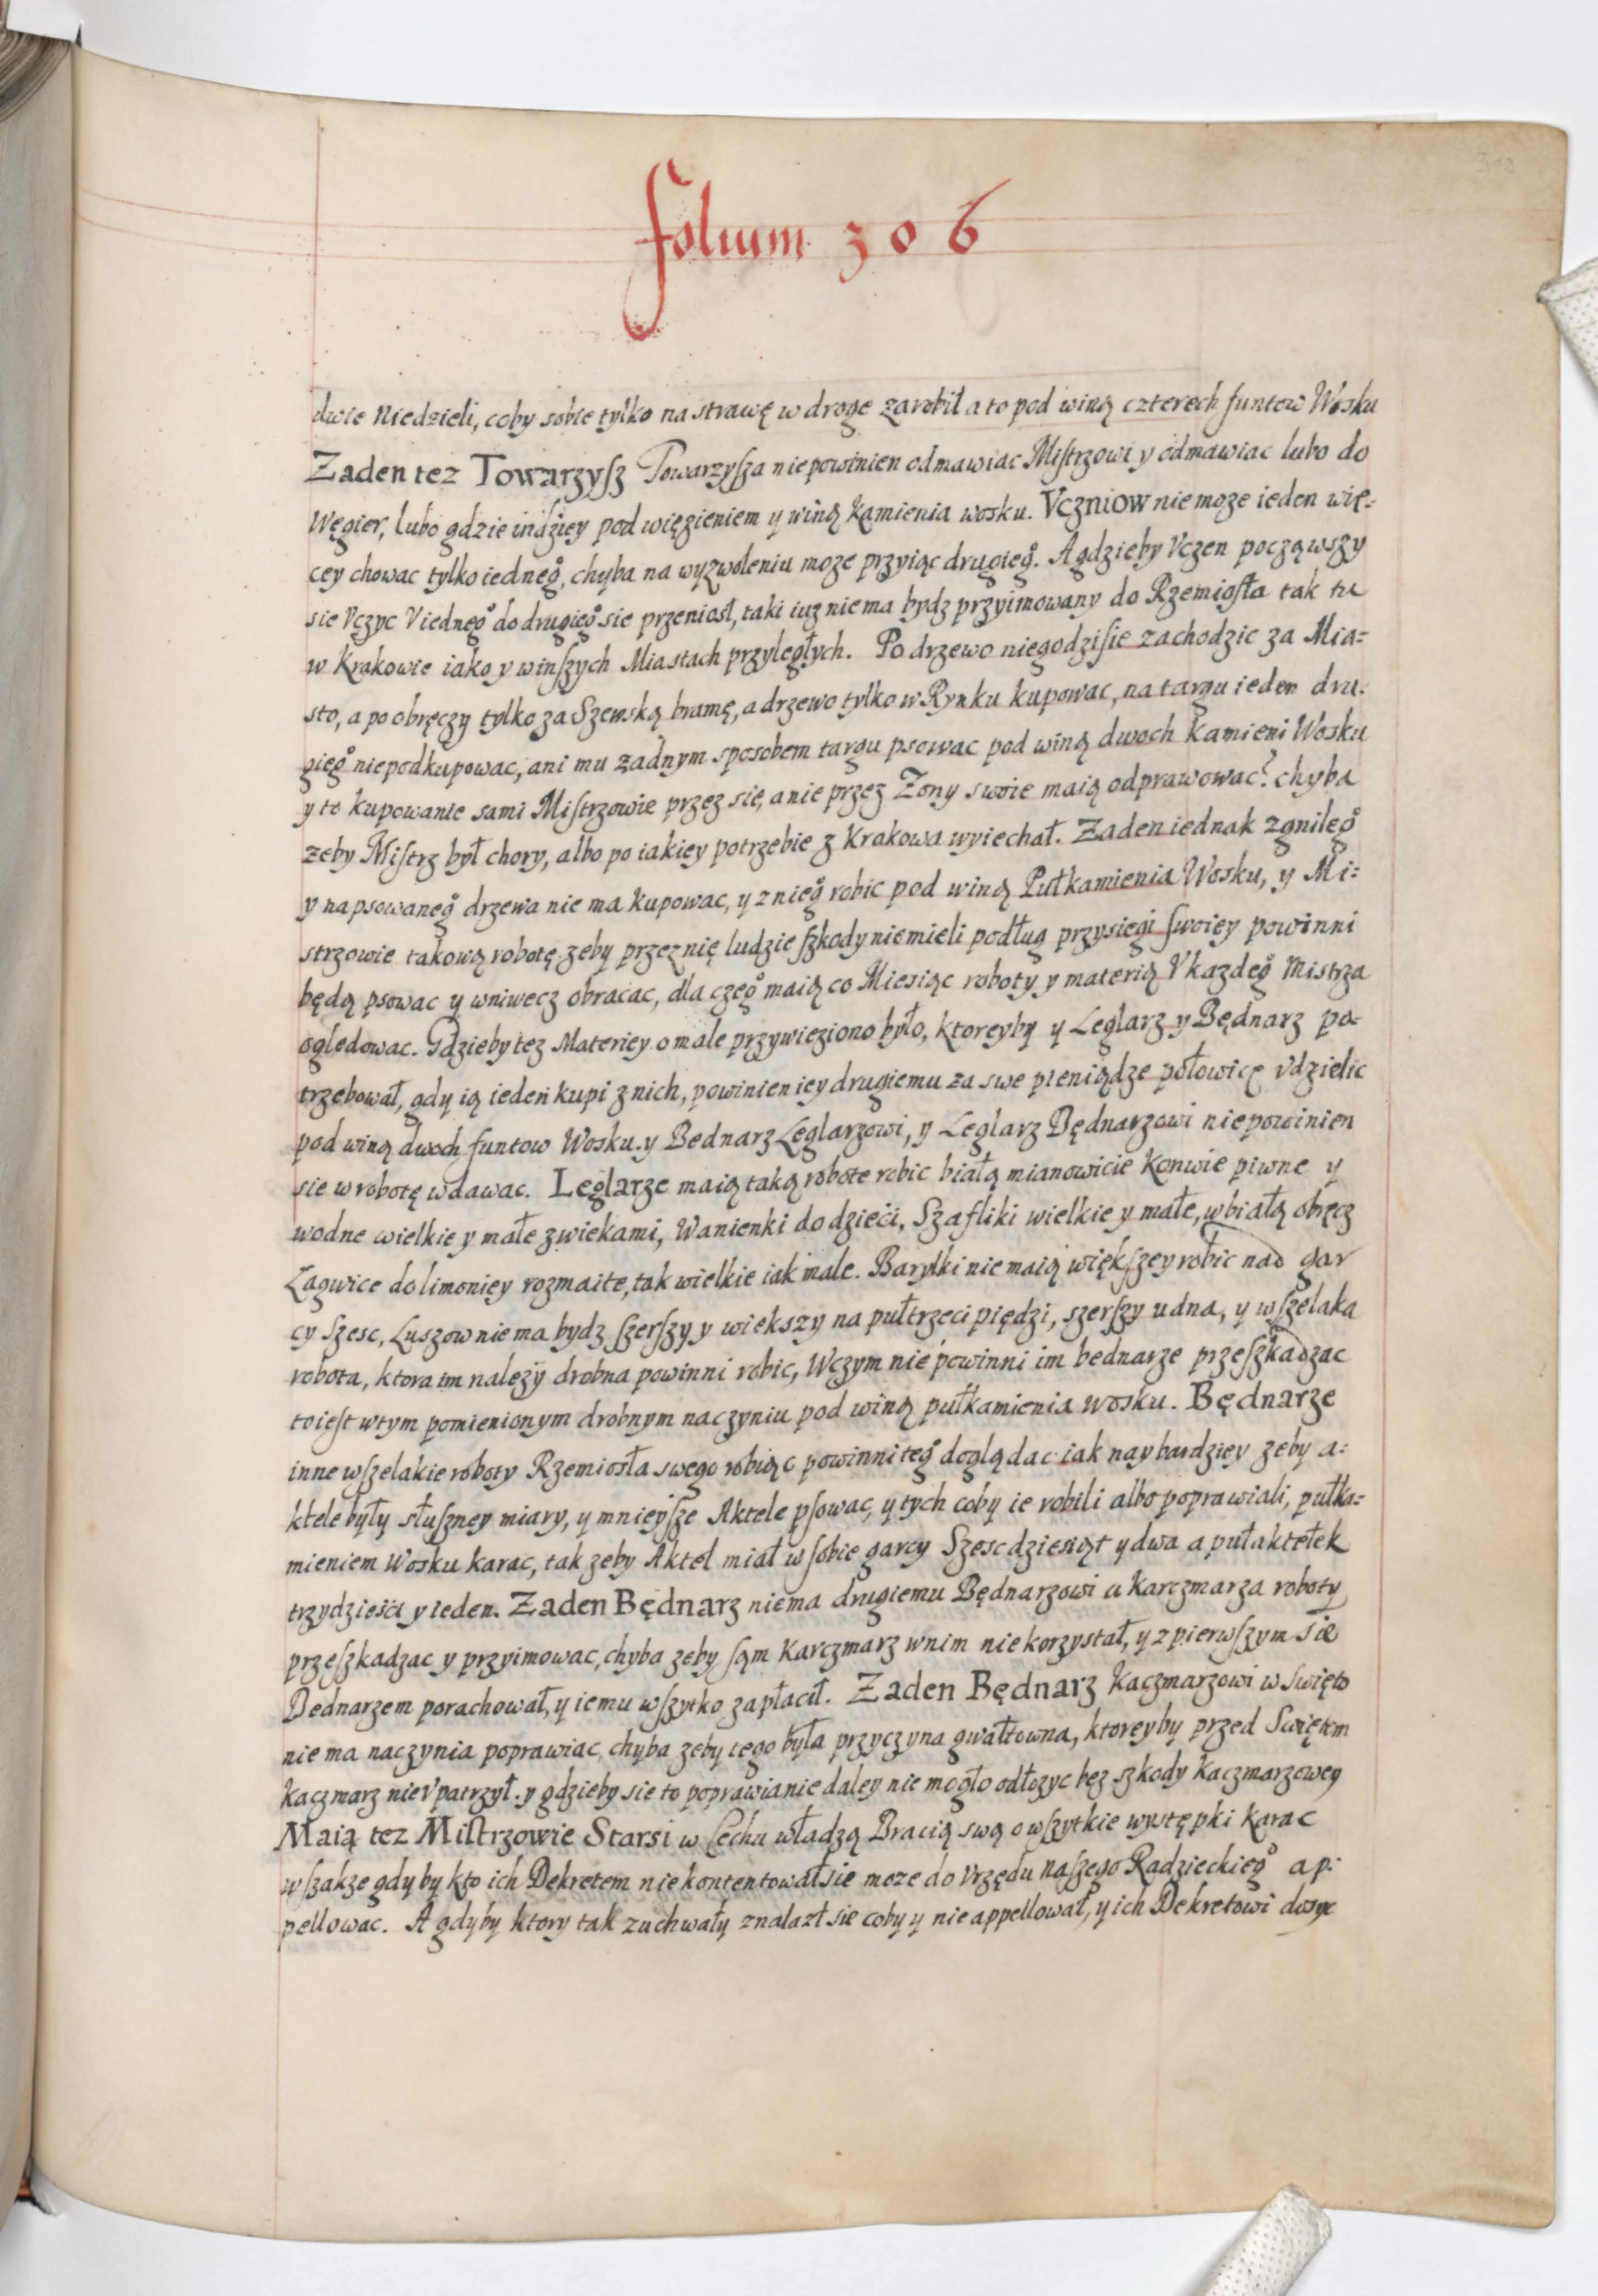 folium 306
dwie Niedzieli, coby sobie tylko na strawę w droge zarobił a to pod winą czterech funtow Wosku
Zaden tez Towarzyſz Towarzyſza nie powinien odmawiac Miſtrzowi y odmawiac lubo do
Węgier, lubo gdzie indziey pod więzieniem y winą kamienia wosku. Vczniow nie moze ieden wię-
cey chowac tylko iednego, chyba na wyzwoleniu moze przyiąc drugiego. A gdzieby Vczen począwszy
sie Vczyc V iednego do drugiego sie przeniosł, taki iuz nie ma bydz przyimowany do Rzemiosła tak tu
w Krakowie iako y w inſzych Miastach przyległych. Po drzewo niegodzi sie zachodzic za Mia-
sto, a po obręczy tylko za Szewską bramę, a drzewo tylko w Rynku kupowac, na targu ieden dru-
giego niepodkupowac, ani mu zadnym sposobem targu psowac pod winą dwoch kamieni Wosku
y to kupowanie sami Miſtrzowie przez się, a nie przez Zony swoie maią odprawowac? chyba
zeby Miſtrz był chory, albo po iakiey potrzebie z Krakowa wyiechał. Zaden iednak zgniłego
y napsowanego drzewa nie ma kupowac, y z niego robic pod winą Pułkamienia Wosku, y Mi-
strzowie takową robotę zeby przez nię ludzie ſzkody niemieli podług przysiegi ſwoiey powinni
będą psowac y wniwecz obracac, dla czego maią co Miesiąc roboty y materią V kazdego Mistrza
ogledowac. Gdzieby tez Materiey o male przywieziono było, ktoreyby y Leglarz y Będnarz po-
trzebował, gdy ią ieden kupi z nich, powinien iey drugiemu za swe pieniądze połowicę Vdzielic
pod winą dwoch funtow Wosku. y Bednarz Leglarzowi, y Leglarz Będnarzowi niepowinien
sie w robotę wdawac. Leglarze maią taką robote robic białą mianowicie Konwie piwne y
wodne wielkie y małe z wiekami, Wanienki do dzieci, Szafliki wielkie y małe, w białą obręcz
Łagwice do limoniey rozmaite, tak wielkie iak male. Baryłki nie maią więkſzey robic nad gar
cy Szesc, Luszow nie ma bydz ſzerſzy y wiekszy na pułtrzeci piędzi, szerſzy u dna, y wſzelaka
robota, ktora im nalezy drobna powinni robic, W czym nie powinni im bednarze przeſzkadzac
to ieſt w tym pomienionym drobnym naczyniu pod winą pułkamienia wosku. Będnarze
inne wſzelakie roboty Rzemiosła swego robiąc powinni tego doglądac iak naybardziey zeby a-
ktele były słuſzney miary, y mnieyſze Aktele pſowac, y tych coby ie robili albo poprawiali, pułka-
mieniem Wosku karac, tak zeby Aktel miał w ſobie garcy Szescdziesiąt y dwa a pułaktełek
trzydzieści y ieden. Zaden Będnarz niema drugiemu Będnarzowi u Karczmarza roboty
przeſzkadzac y przyimowac, chyba zeby ſąm Karczmarz w nim nie korzystał, y z pierwſzym sie
Bednarzem porachował, y iemu wſzytko zapłacił. Zaden Będnarz Kaczmarzowi w swięto
nie ma naczynia poprawiac, chyba zeby tego była przyczyna gwałtowna, ktoreyby przed Swiętem
Kaczmarz nie Vpatrzył. y gdzieby sie to poprawianie daley nie mogło odłozyc bez szkody Kaczmarzowey
Maią tez Miſtrzowie Starsi w Cechu władzą Bracią swą o wſzytkie występki Karac
wſzakze gdyby kto ich Dekretem nie kontentował sie moze do Vrzędu naſzego Radzieckiego ap-
pellowac. A gdyby ktory tak zuchwały znalazł sie coby y nie appellował, y ich Dekretowi dosyc